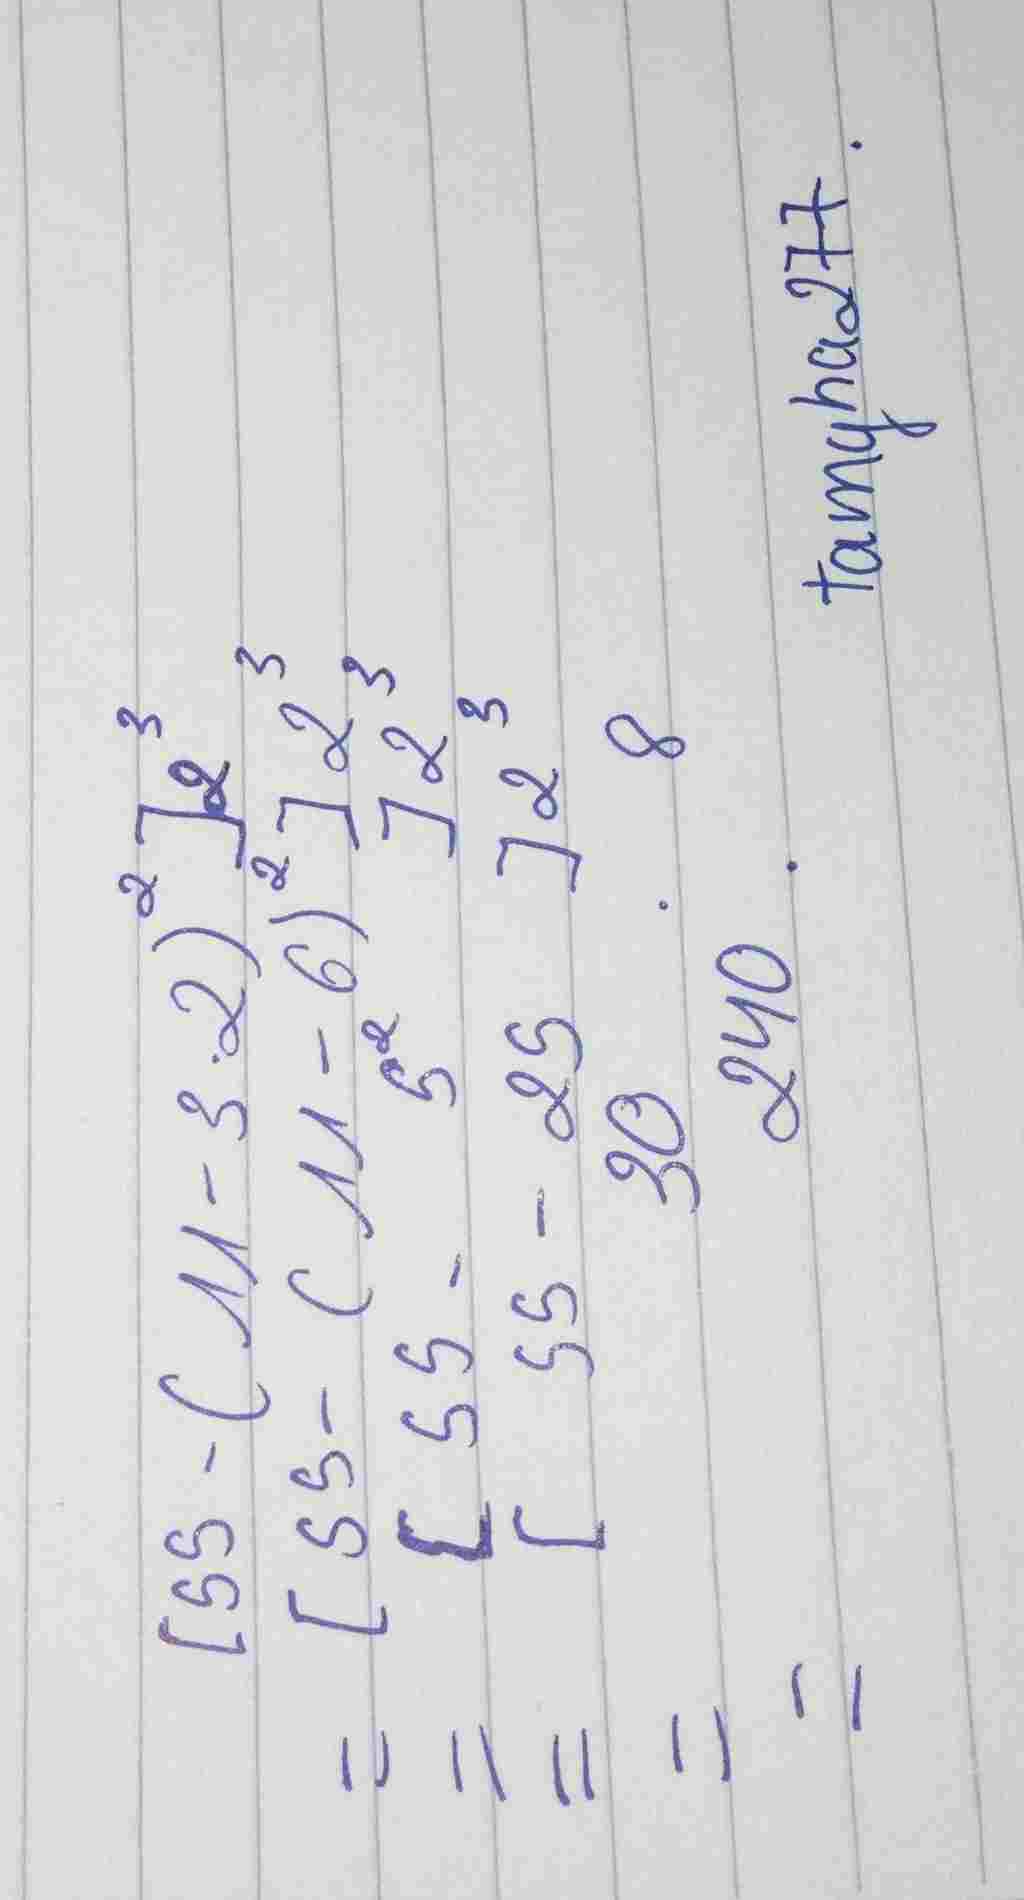 [55 - (11 - 3.2)²]2³
= [55 - (11 - 6)²]2³
= [55 - 5²]2³
= [55 - 25]2³
= 30 . 8
= 240.
tamyha277.